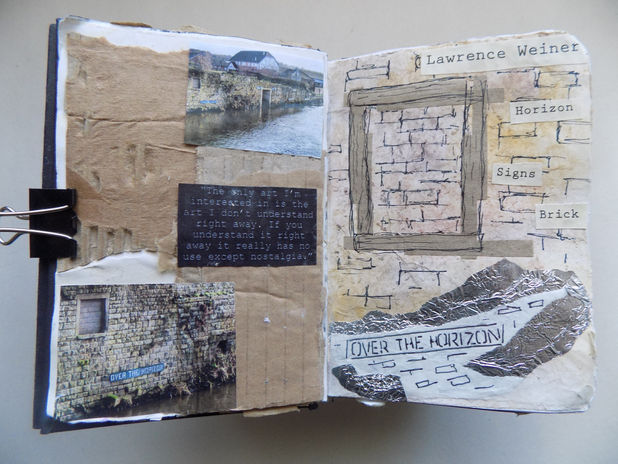 "The only art I'm
interested in is the
art I don't understand
right away. If you
understand it right
away it really has no
use except nostalgia."
OVER THE HORIZON
Lawrence Weiner
Horizon
Signs
Brick
OVER THE HORIZON